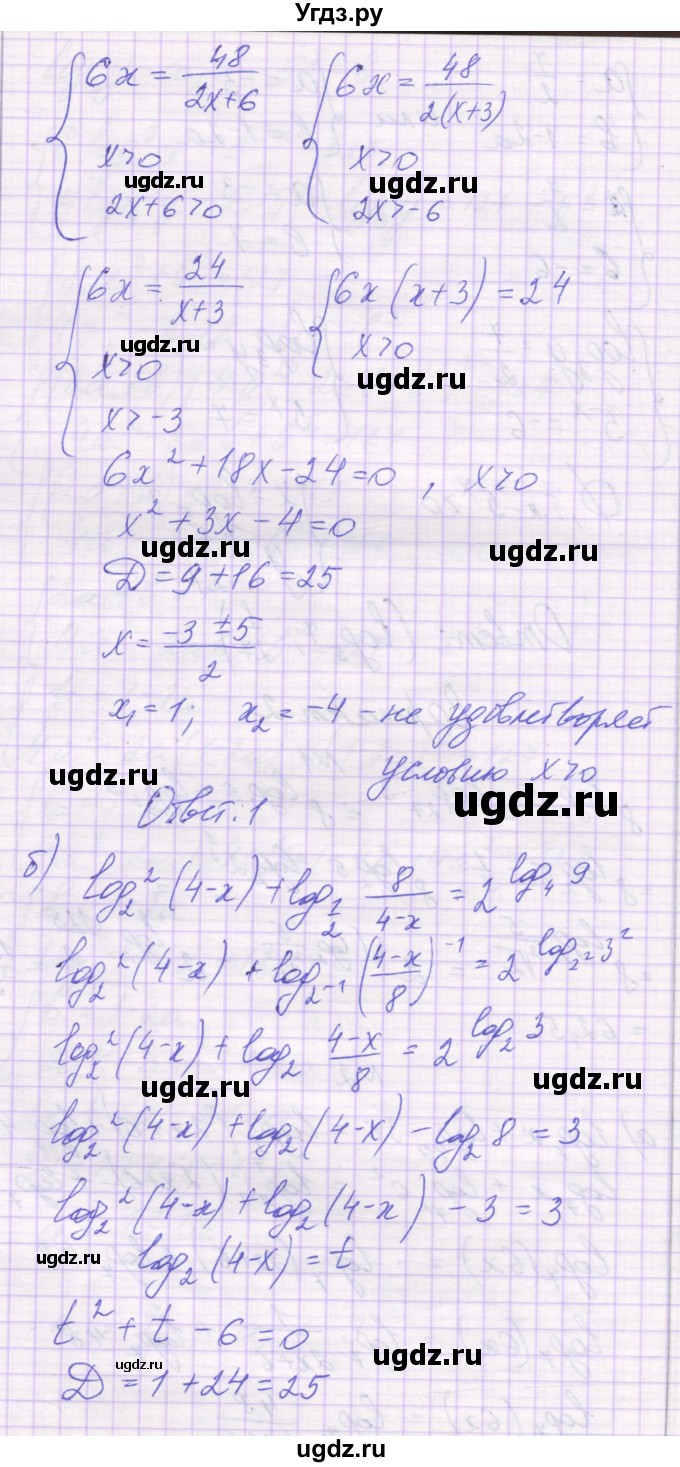 Угдз.ру
6x = 48/(2x+6)   6x = 48/(2(x+3))
x>0   x>0
ugdz.ru   ugdz.ru
2x+6>0   2x>-6
6x = 24/(x+3)   6x(x+3) = 24
ugdz.ru   x>0
x>0   ugdz.ru
x>-3
6x² + 18x - 24 = 0 , x>0
x² + 3x - 4 = 0
ugdz.ru   ugdz.ru
Д = 9 + 16 = 25
x = (-3 ± 5)/2
x₁ = 1; x₂ = -4 - не удовлетворяет
ugdz.ru   условию x>0
Ответ: 1   ugdz.ru
б) log₂²(4-x) + log_(1/2) 8/(4-x) = 2^(log₄ 9)
log₂²(4-x) + log_(2⁻¹) ((4-x)/8)⁻¹ = 2^(log_(2²) 3²)
log₂²(4-x) + log₂ (4-x)/8 = 2^(log₂ 3)
ugdz.ru   ugdz.ru
log₂²(4-x) + log₂(4-x) - log₂ 8 = 3
log₂²(4-x) + log₂(4-x) - 3 = 3
ugdz.ru   log₂(4-x) = t
t² + t - 6 = 0
ugdz.ru   ugdz.ru
Д = 1 + 24 = 25
ugdz.ru